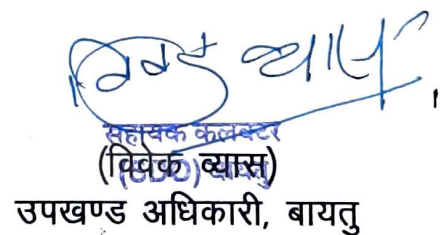 विवेक व्यास
सहायक कलक्टर
(विवेक व्यास)
(SDO) बायतु
उपखण्ड अधिकारी, बायतु